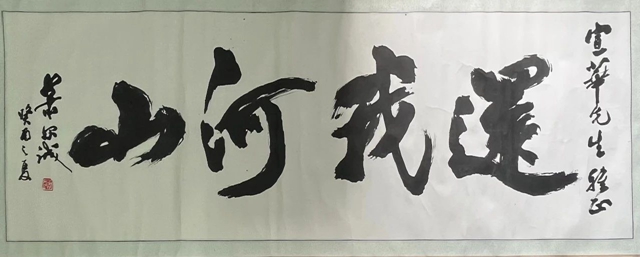 宣華先生雅正
還我河山
癸酉之夏